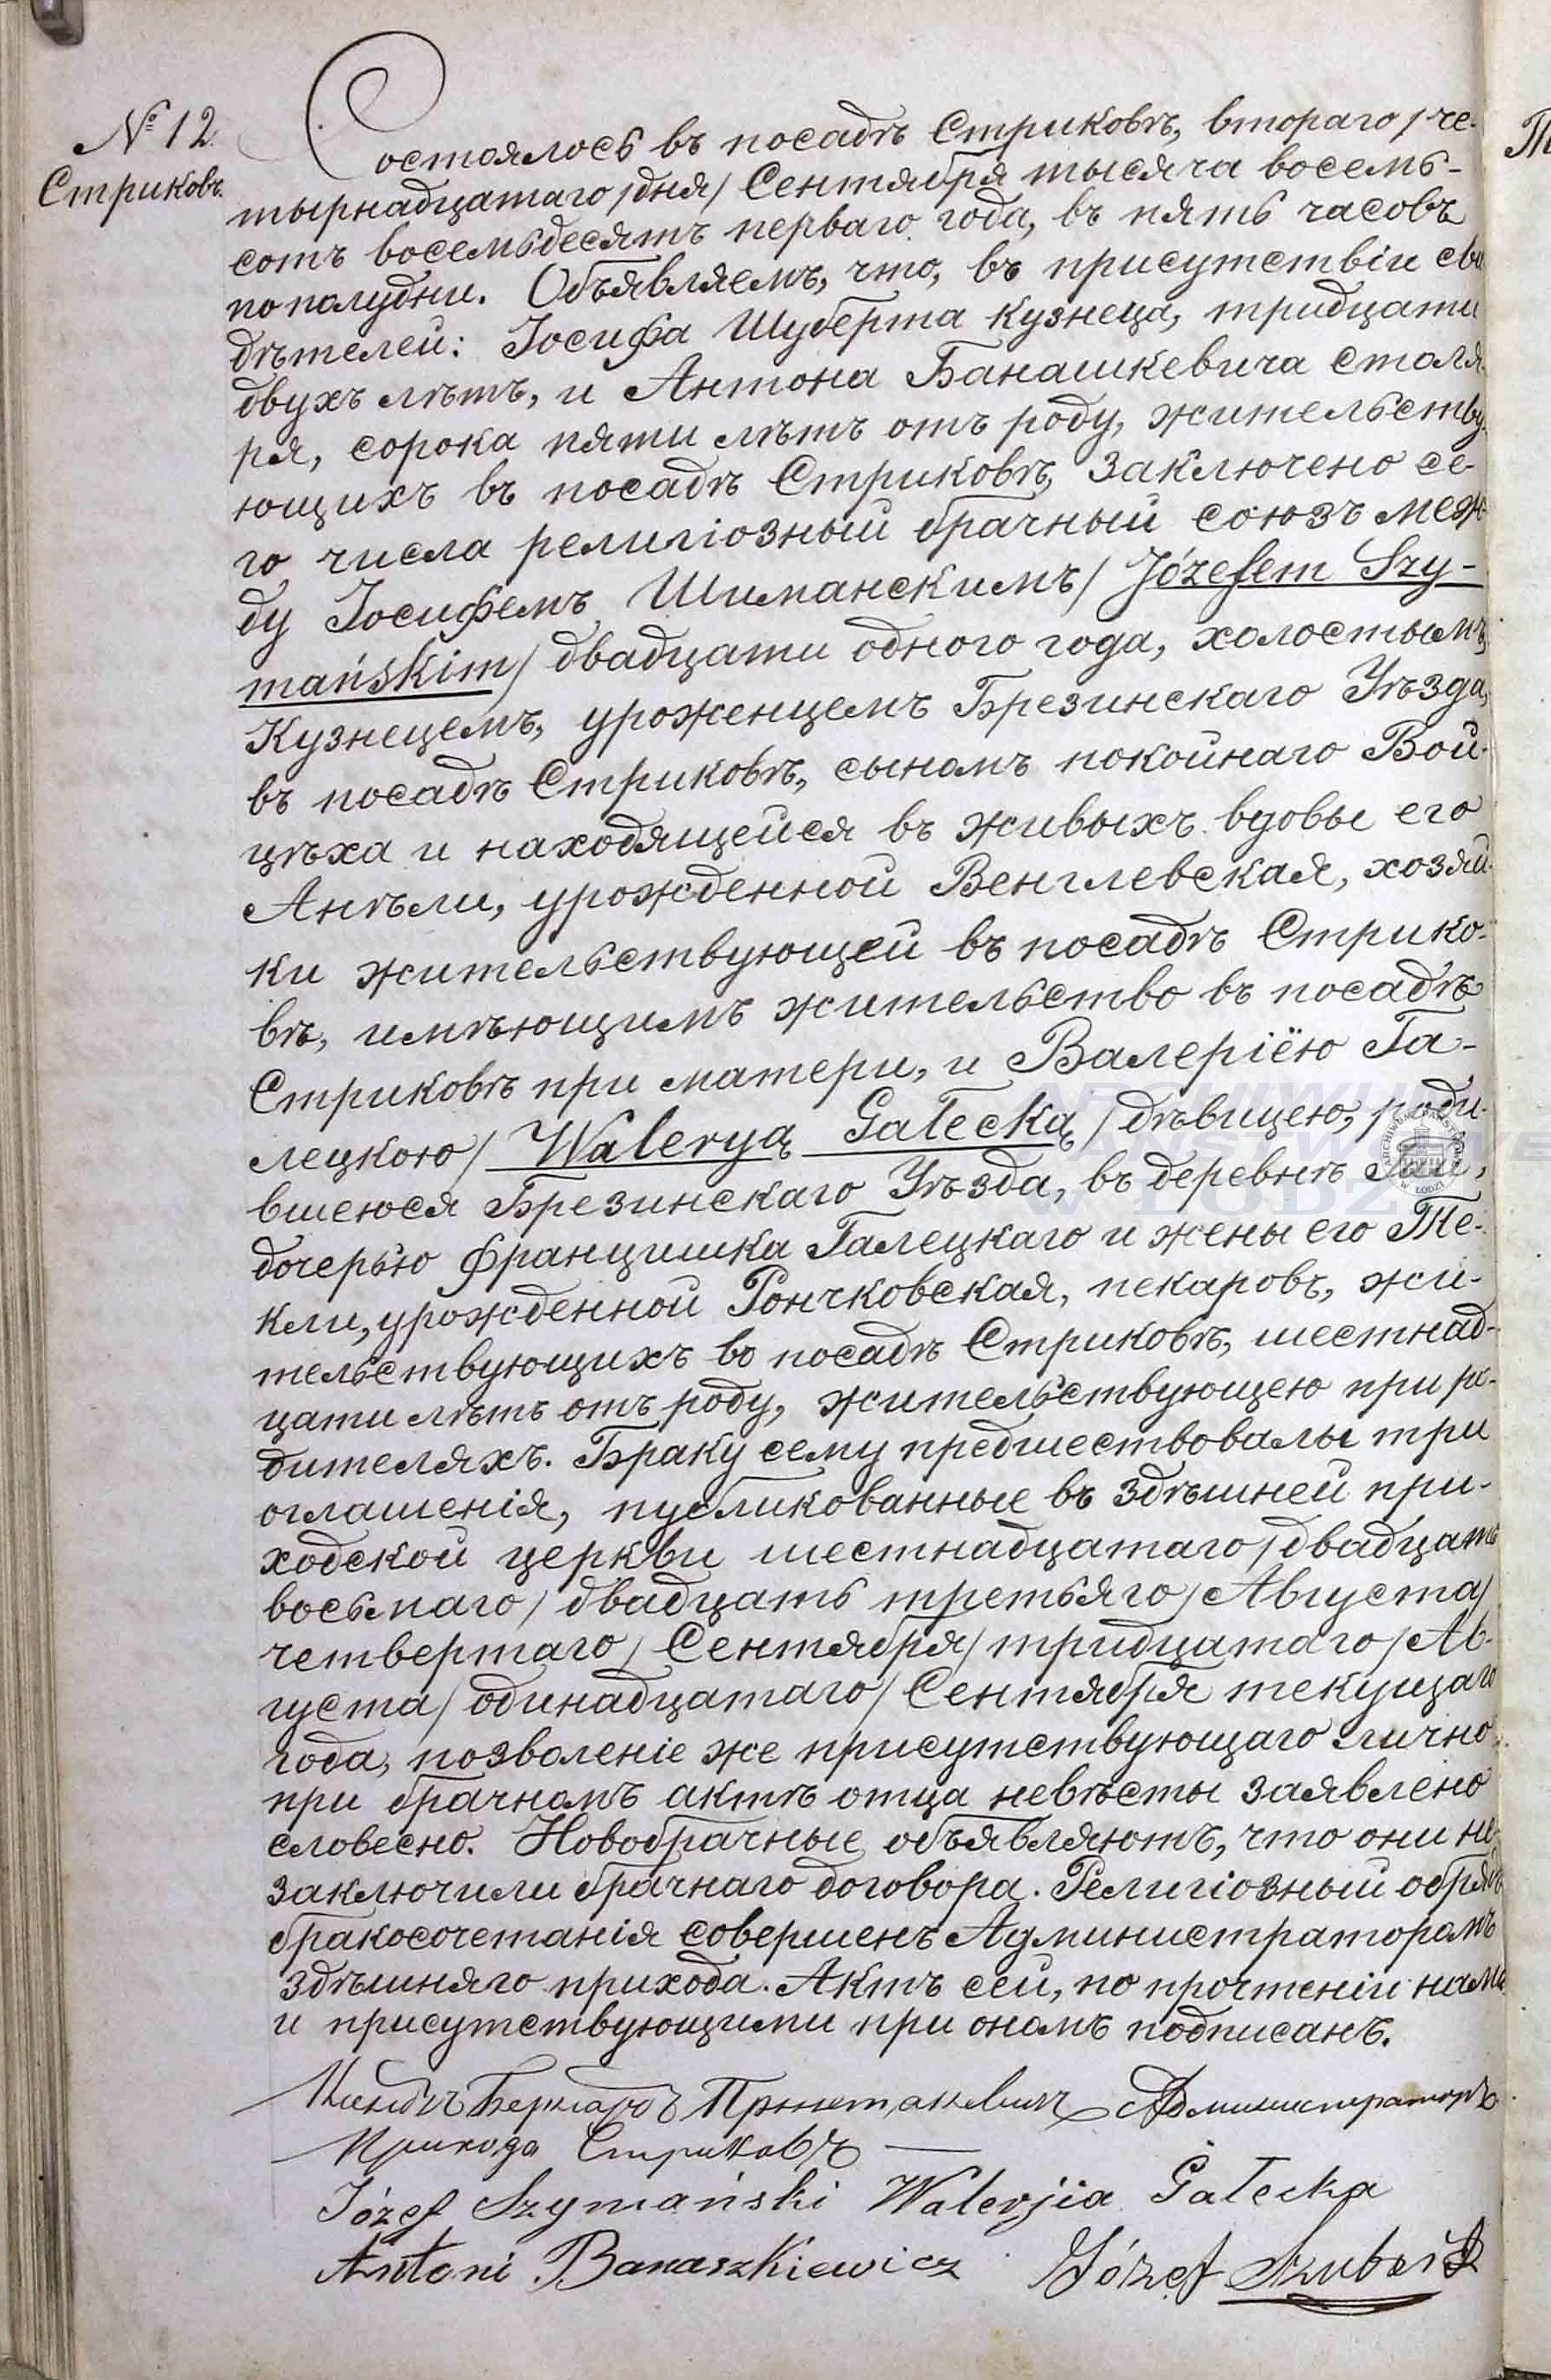 № 12.
Стриковъ.
Состоялось въ посадѣ Стриковѣ, втораго / че-
тырнадцатаго / дня / Сентября тысяча восемь-
сотъ восемьдесятъ перваго года, въ пять часовъ
по полудни. Объявляемъ, что, въ присутствіи сви
дѣтелей: Іосифа Шуберта кузнеца, тридцати
двухъ лѣтъ, и Антона Банашкевича столя-
ря, сорока пяти лѣтъ отъ роду, жительству-
ющихъ въ посадѣ Стриковѣ, заключено се-
го числа религіозный брачный союзъ меж-
ду Іосифемъ Шиманскимъ / Józefem Szy-
mańskim / двадцати одного года, холостымъ,
Кузнецемъ, уроженцемъ Брезинскаго Уѣзда,
въ посадѣ Стриковѣ, сыномъ покойнаго Вой-
цѣха и находящейся въ живыхъ вдовы его
Анѣли, урожденной Венглевская, хозяй-
ки жительствующей въ посадѣ Стрико-
вѣ, имѣющимъ жительство въ посадѣ
Стриковѣ при матери, и Валеріёю Га-
лецкою / Waleryą Gałecką / дѣвицею, роди-
вшеюся Брезинскаго Уѣзда, въ деревнѣ
дочерью Францишка Галецкаго и жены его Те-
кли, урожденной Рончковская, пекаровъ, жи-
тельствующихъ во посадѣ Стриковѣ, шестнад-
цати лѣтъ отъ роду, жительствующею при ро-
дителяхъ. Браку сему предшествовалы три
оглашенія, публикованные въ здѣшней при-
ходской церкви шестнадцатаго / двадцать
восьмаго / двадцать третьяго / Августа /
четвертаго / Сентября / тридцатаго / Ав-
густа / одинадцатаго / Сентября текущаго
года, позволеніе же присутствующаго лично
при брачномъ актѣ отца невѣсты заявлено
словесно. Новобрачные объявляютъ, что они не
заключили брачнаго договора. Религіозный обрядъ
бракосочетанія совершенъ Администраторомъ
здѣшняго прихода. Актъ сей, по прочтеніи нами
и присутствующими при ономъ подписанъ.
Ксендзъ Бернардъ Администраторъ
Прихода Стриковъ
Józef Szymański Walerjia Gałecka
Antoni Banaszkiewicz Józef Szubert